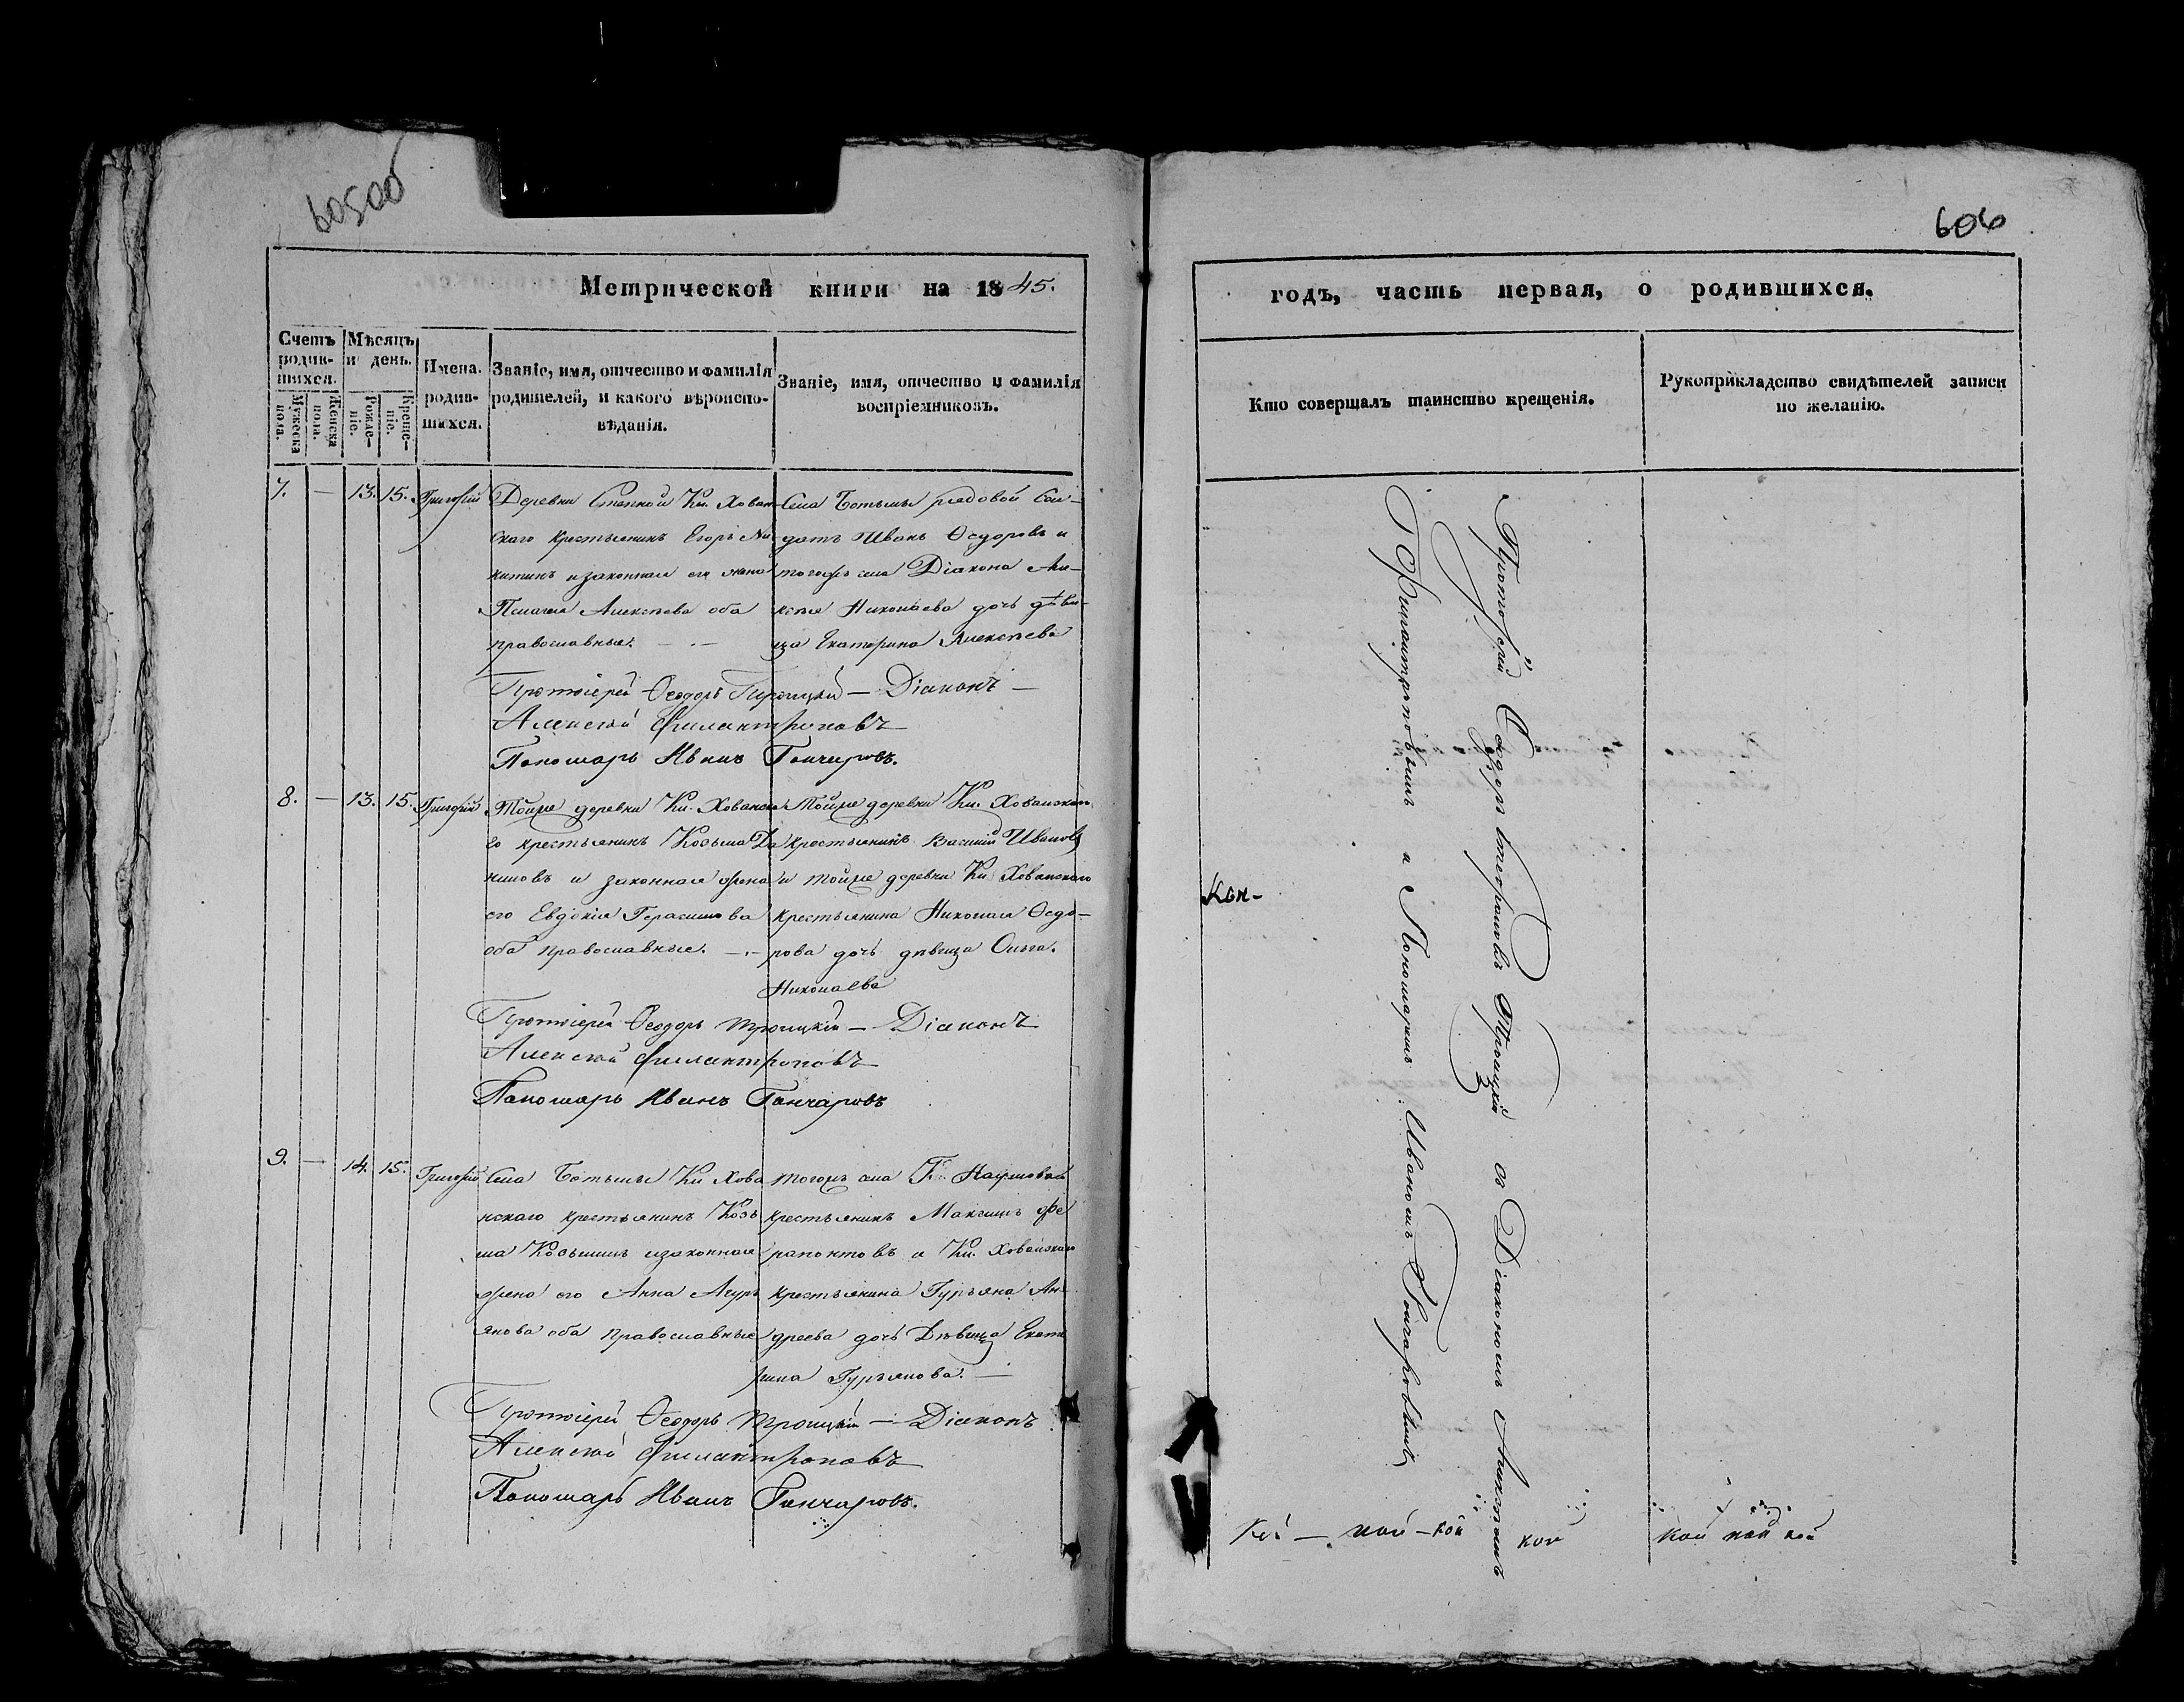 606
Метрической книги на 1845.
годъ, часть первая, о родившихся.
Счетъ родившихся.
Мужеска пола.
Женска пола.
Мѣсяцъ и день.
Рожденіе.
Крещеніе.
Имена родившихся.
Званіе, имя, отчество и фамилія родителей, и какого вѣроисповѣданія.
Званіе, имя, отчество и фамилія воспріемниковъ.
Кто совершалъ таинство крещенія.
Рукоприкладство свидѣтелей записи по желанію.
7. — 13. 15. Григорій
Деревни Степной Кн. Хован-
скаго крестьянинъ Егоръ Ни-
китинъ и законная его жена
Пелагея Алексѣева оба
православные.
Села Ботьмы рядовой Сол-
датъ Иванъ Ѳедоровъ и
тогожъ села Діакона Але-
ксѣя Николаева дочь дѣви-
ца Екатерина Алексѣева
Протоіерей Ѳеодоръ Троицкій — Діаконъ —
Алексѣй Филантроповъ
Пономарь Иванъ Гончаровъ.
8. — 13. 15. Григорій
Тойже деревни Кн. Хованска
го крестьянинъ Козьма Да
ниловъ и законная жена
его Евдокія Герасимова
оба православные.
Тойже деревни Кн. Хованскаго
крестьянинъ Василій Ивановъ
и тойже деревни Кн. Хованскаго
крестьянина Николая Ѳедо-
рова дочь дѣвица Ольга.
Николаева
Протоіерей Ѳеодоръ Троицкій — Діаконъ
Алексѣй Филантроповъ
Пономарь Иванъ Гончаровъ
9. — 14. 15. Григорій
Села Ботьмы Кн Хова
нскаго крестьянинъ Козь
ма Козьминъ и законная
жена его Анна Агурь
янова оба православные
тогожъ села Г. Наумовой
крестьянинъ Максимъ Фе
рапонтовъ и Кн. Хованскаго
крестьянина Гурьяна Ан
дреева дочь Дѣвица Екате
рина Гурьянова.
Протоіерей Ѳеодоръ Троицкій — Діаконъ
Алексѣй Филантроповъ
Пономарь Иванъ Гончаровъ.
Протоіерей Ѳеодоръ Стефановъ Троицкій съ Діакономъ Алексѣемъ
Филантроповымъ и Пономаремъ Иваномъ Гончаровымъ
Кон-
кой — кой
кой
кой кой кой